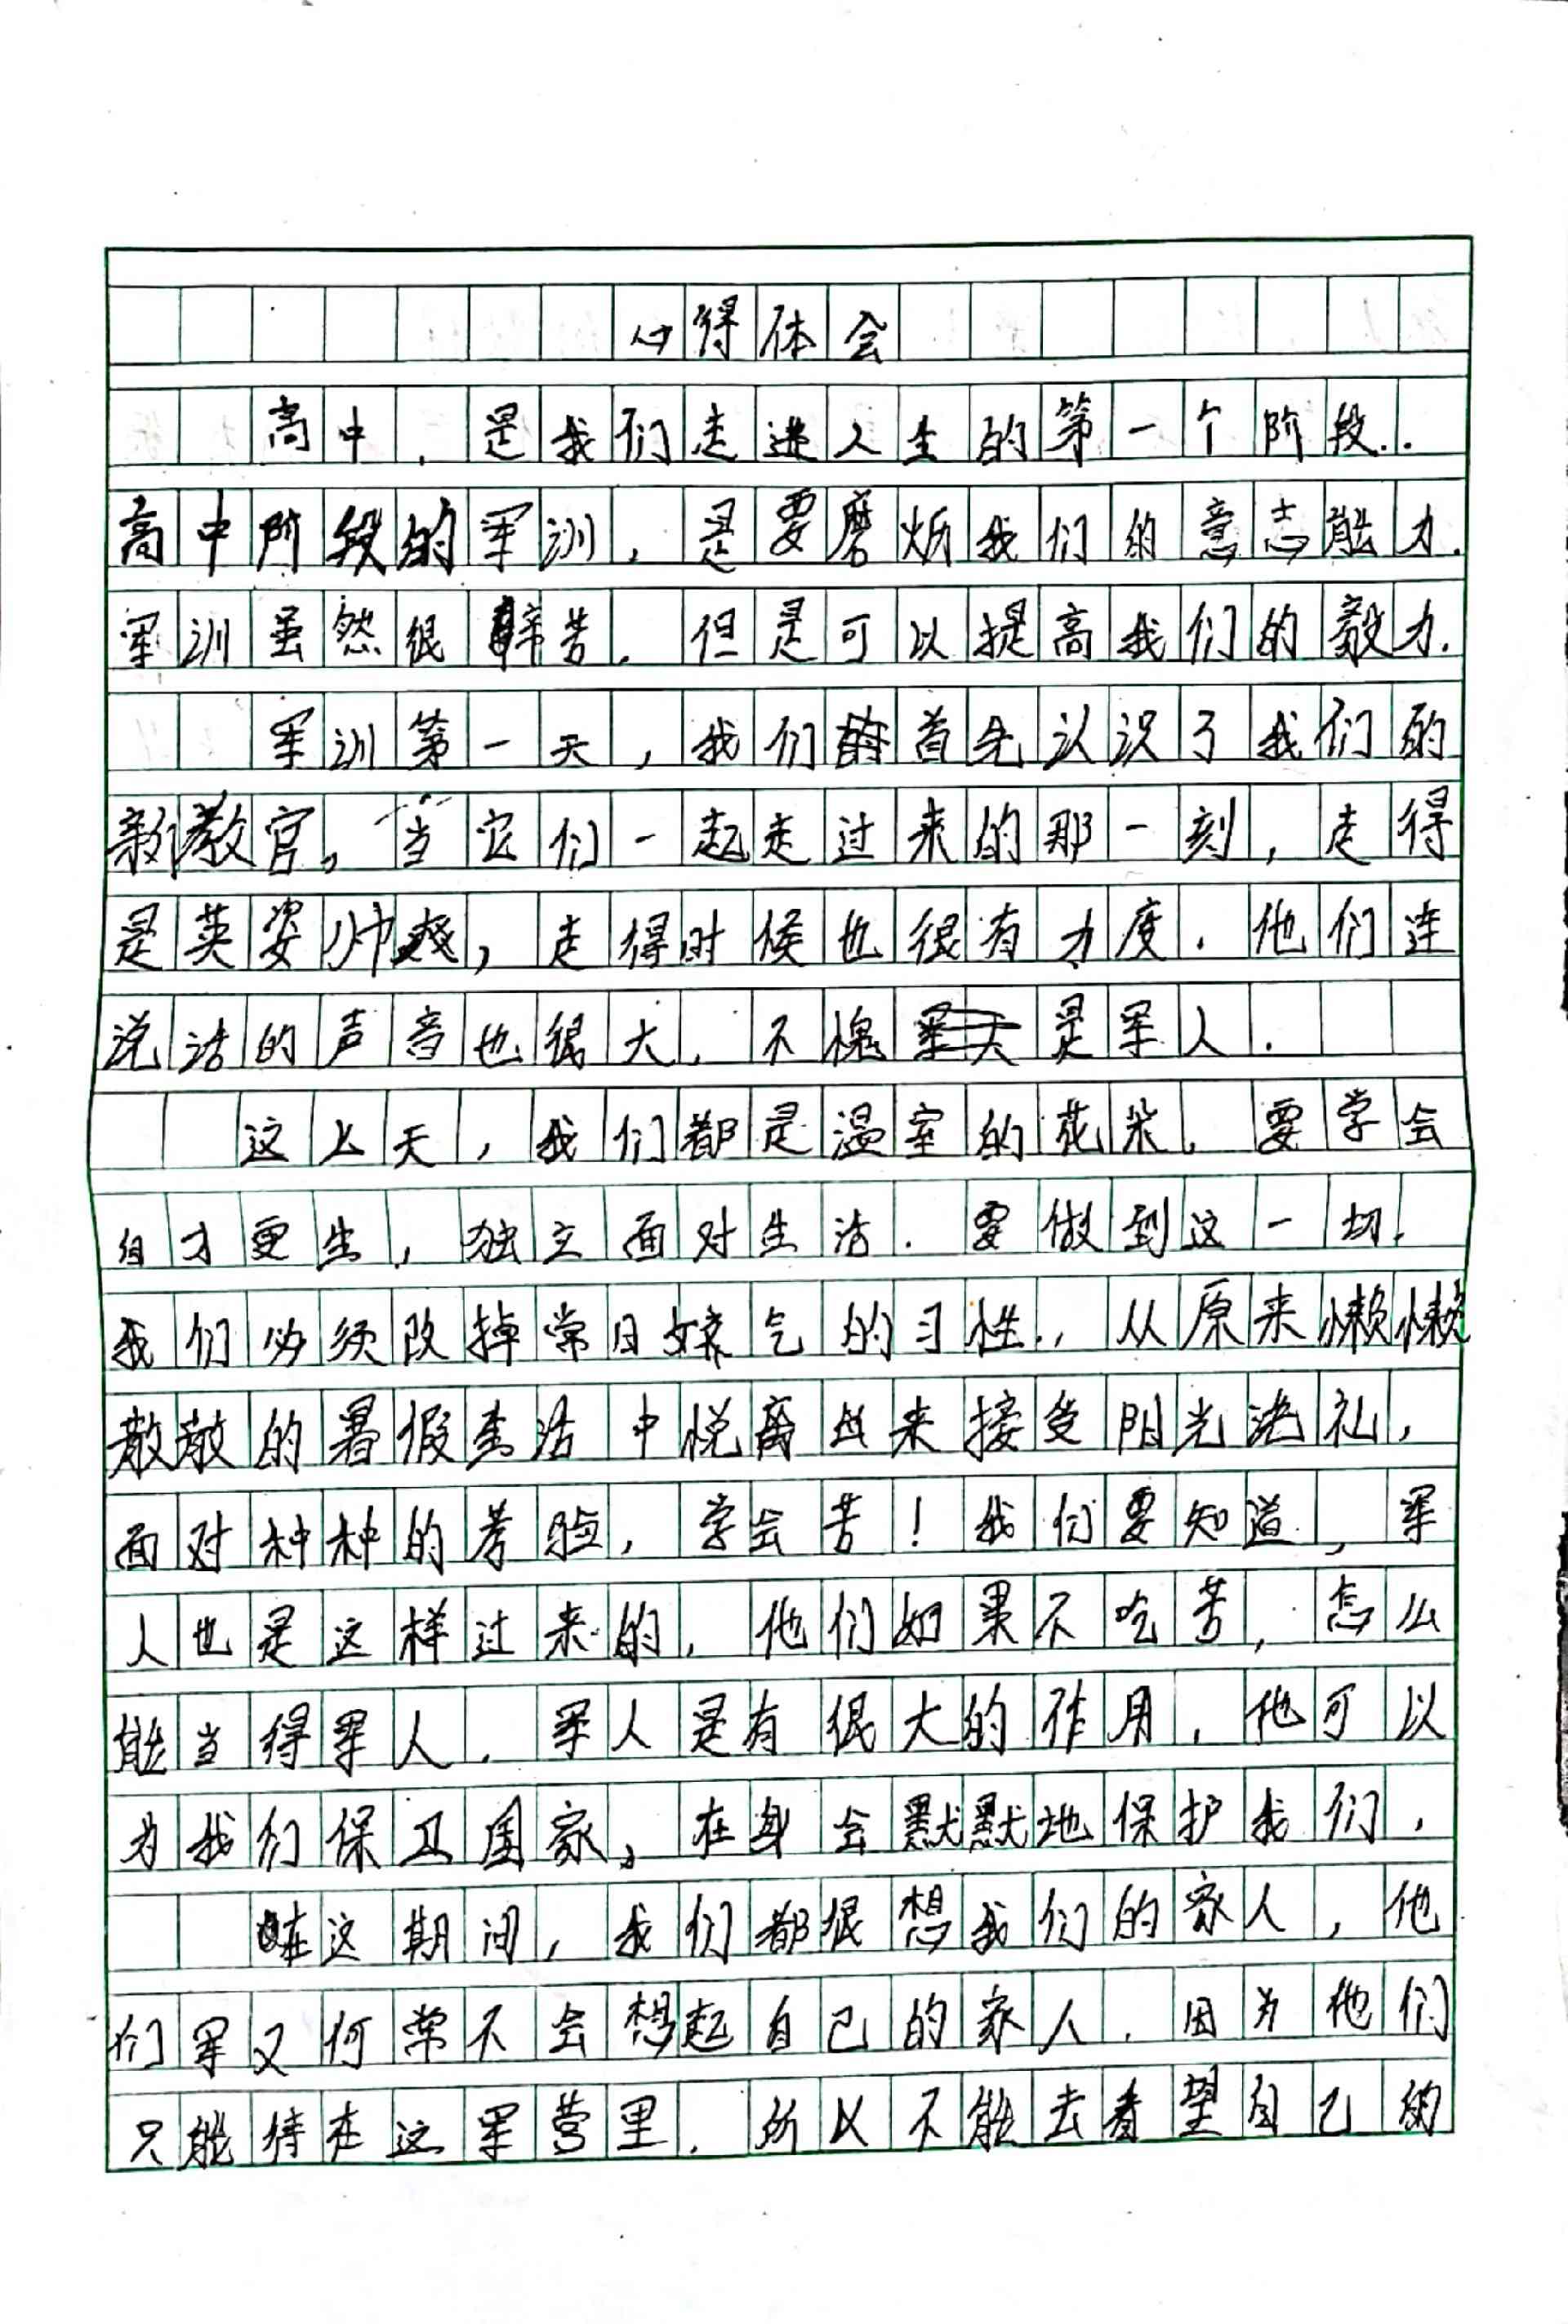 心得体会
高中,是我们走进人生的第一个阶段..
高中阶段的军训,是要磨炼我们的意志能力.
军训虽然很辛苦.但是可以提高我们的毅力.
军训第一天,我们首先认识了我们的
新教官,当它们一起走过来的那一刻,走得
是英姿帅爽,走得时候也很有力度.他们连
说话的声音也很大.不愧是军人.
这几天,我们都是温室的花朵.要学会
自力更生,独立面对生活.要做到这一切.
我们必须改掉常日娇气的习性.,从原来懒懒
散散的暑假生活中脱离出来接受阳光洗礼,
面对种种的考验,学会苦!我们要知道,军
人也是这样过来的,他们如果不吃苦,怎么
能当得军人.军人是有很大的作用,他可以
为我们保卫国家,在身会默默地保护我们,
在这期间,我们都很想我们的家人,他
们军又何常不会想起自己的家人.因为他们
只能待在这军营里.所以不能去看望自己的